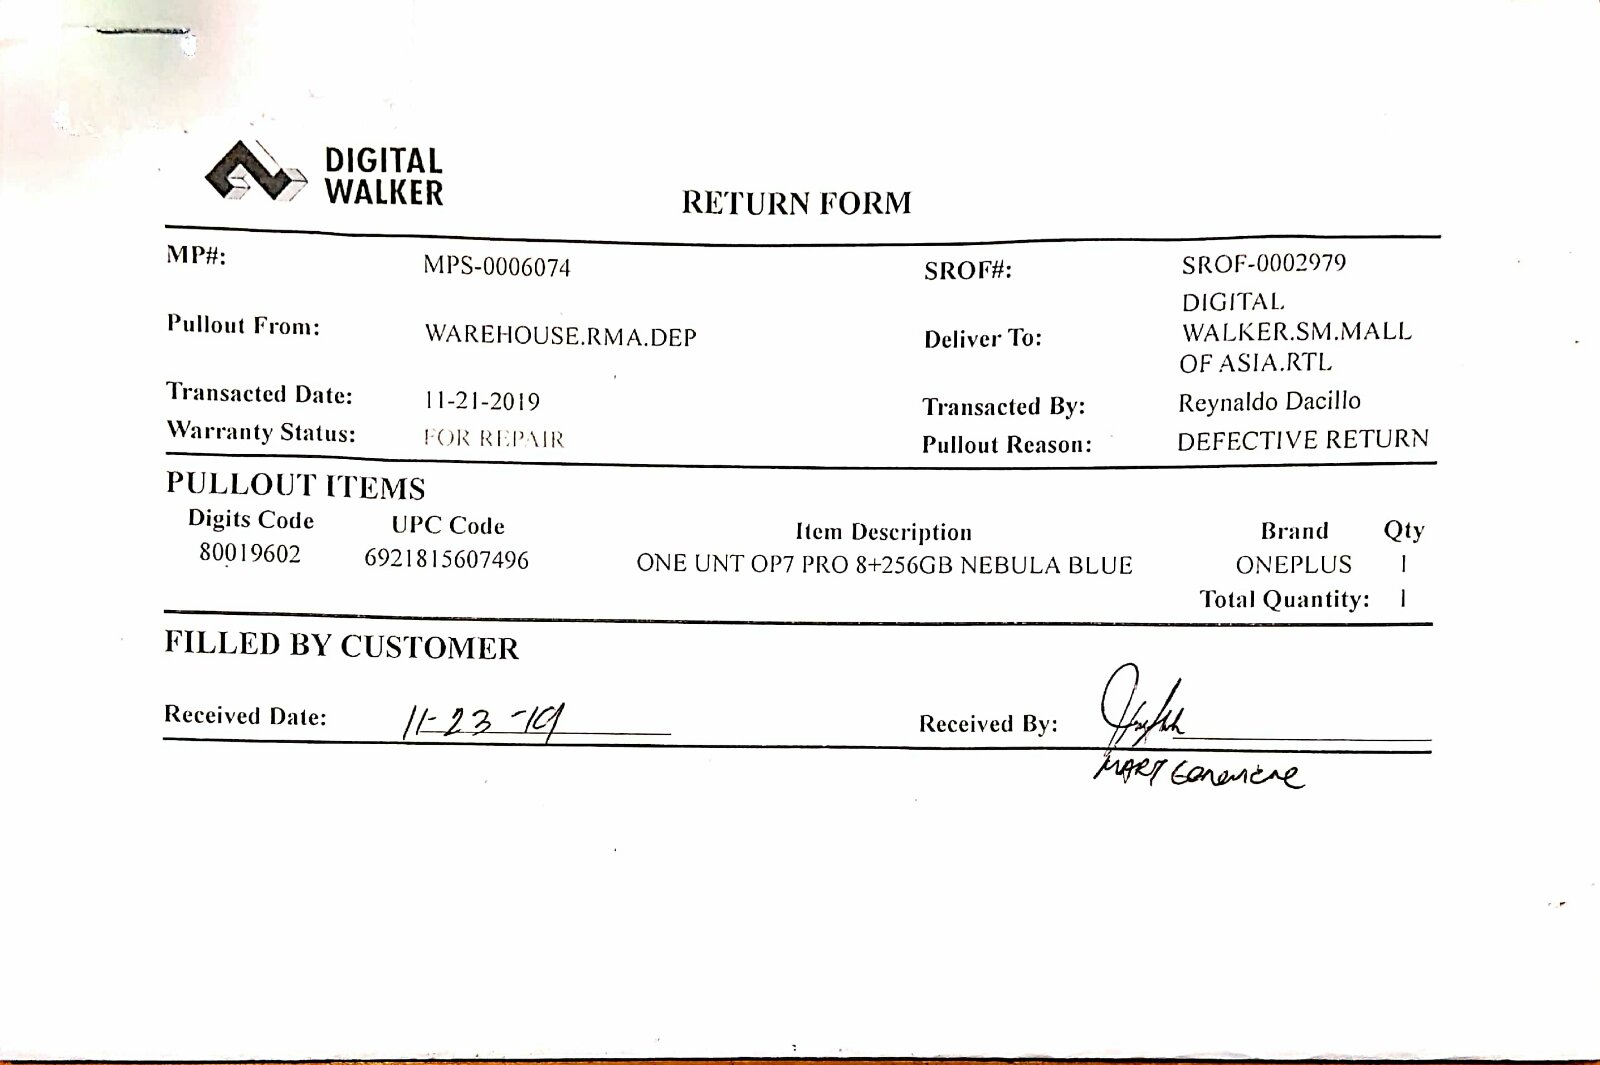 DIGITAL
WALKER
RETURN FORM
MP#: MPS-0006074 SROF#: SROF-0002979
Pullout From: WAREHOUSE.RMA.DEP Deliver To: DIGITAL
WALKER.SM.MALL
OF ASIA.RTL
Transacted Date: 11-21-2019 Transacted By: Reynaldo Dacillo
Warranty Status: FOR REPAIR Pullout Reason: DEFECTIVE RETURN
PULLOUT ITEMS
Digits Code UPC Code Item Description Brand Qty
80019602 6921815607496 ONE UNT OP7 PRO 8+256GB NEBULA BLUE ONEPLUS 1
Total Quantity: 1
FILLED BY CUSTOMER
Received Date: 11-23-19 Received By:
MART